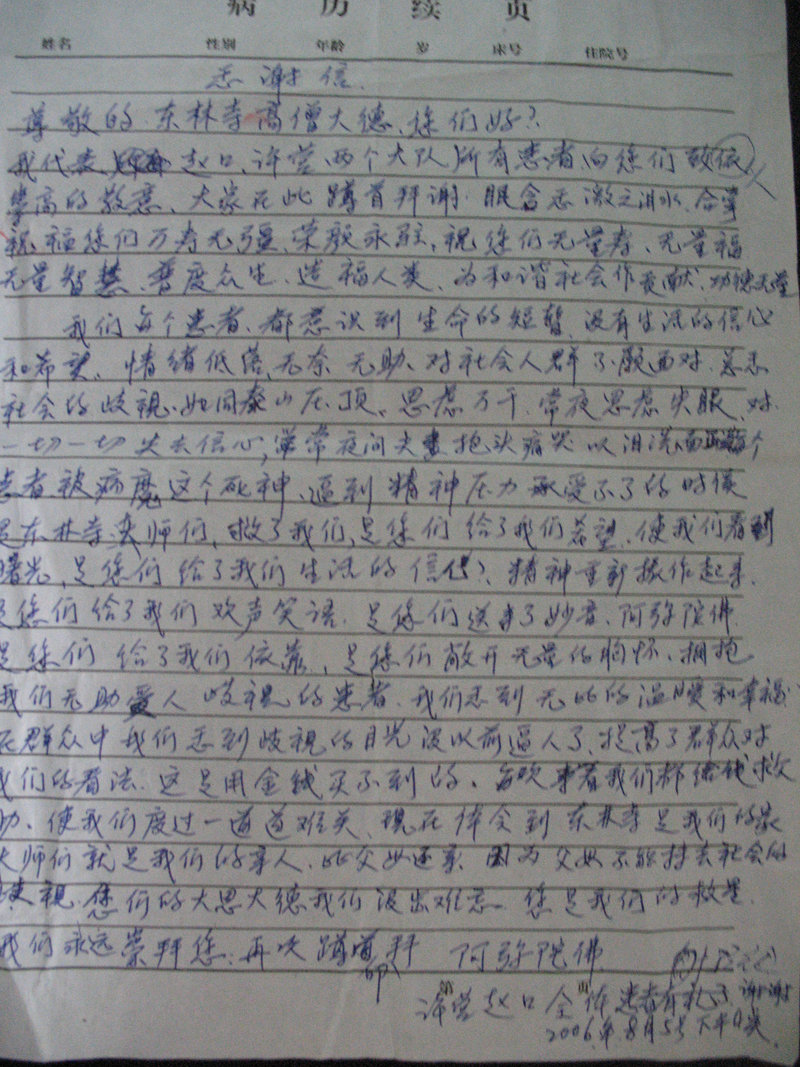 病历续页
姓名 性别 年龄 岁 床号 住院号
感谢信
尊敬的东林寺高僧大德、您们好?
我代表 赵口、许营两个大队所有患者向您们致依
崇高的敬意、大家在此蹲首拜谢 眼含感激之泪水、合掌
祝福您们万寿无疆、荣颜永驻,祝您们无量寿、无量福
无量智慧、普度众生、造福人类、为和谐社会作贡献、功德无量
我们每个患者、都意识到生命的短暂、没有生活的信心
和希望、情绪低落、无奈无助、对社会人群不愿面对、
社会的歧视、如同泰山压顶、思虑万千、常夜思虑失眠、对
一切一切失去信心, 常夜间夫妻抱头痛哭以泪洗面 个
患者被病魔这个死神、逼到精神压力承受不了的时候
是东林寺 师们,救了我们,是您们给了我们希望、使我们看到
曙光,是您们给了我们生活的信心、精神重新振作起来、
是您们给了我们欢声笑语、是您们送来了妙音、阿弥陀佛
是您们给了我们依靠,是您们敞开无量的胸怀、拥抱
我们无助 人歧视的患者、我们感到无比的温暖和幸福
在群众中我们感到歧视的目光没以前逼人了、提高了群众对
我们的看法、这是用金钱买不到的、每次来看我们都给钱救
助、使我们度过一道道难关、现在体会到东林寺是我们的家
大师们就是我们的亲人、比父母还亲、因为父母不能 去社会的
歧视、您们的大恩大德我们没齿难忘 您是我们的救星
我们永远崇拜您、再次蹲首 拜 阿弥陀佛
叩
第 页
许营赵口全体患者有礼了 谢谢
2006年8月5号下午